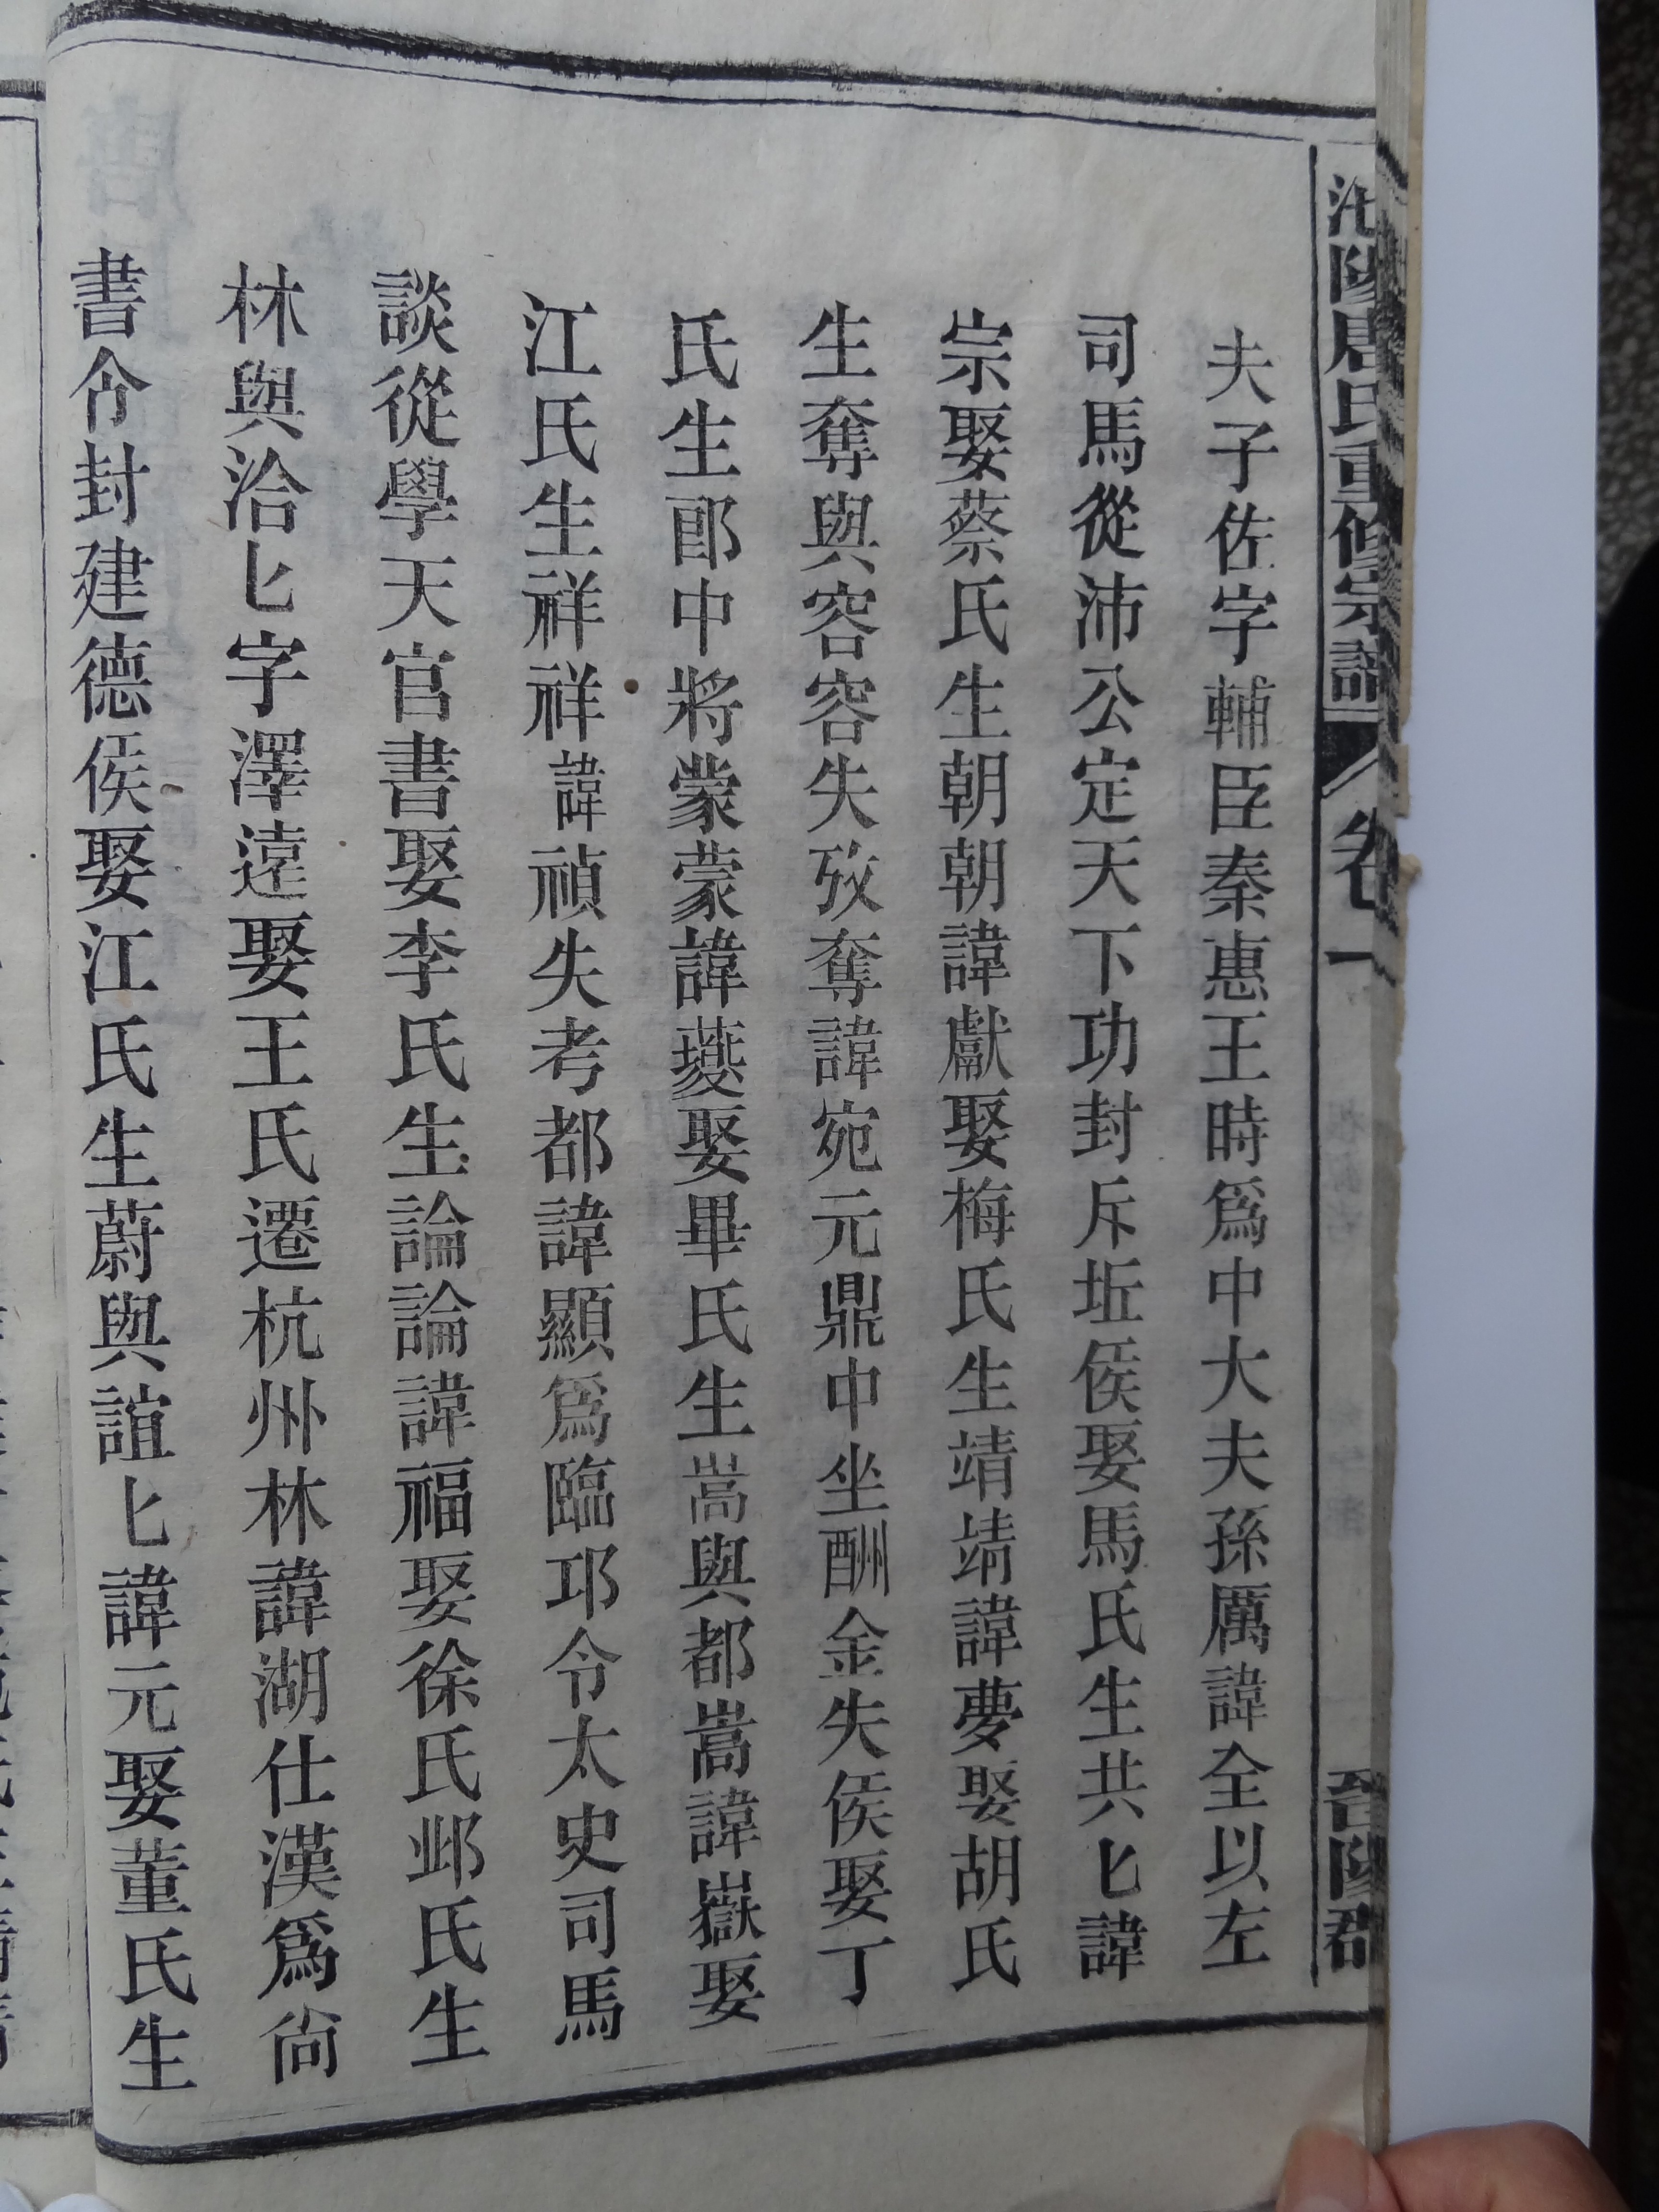 沌陽唐氏重修宗譜 卷一 晉陽郡
夫子佐字輔臣秦惠王時爲中大夫孫厲諱全以左
司馬從沛公定天下功封斥坵侯娶馬氏生共匕諱
宗娶蔡氏生朝朝諱獻娶梅氏生靖靖諱夢娶胡氏
生奪與容容失攷奪諱宛元鼎中坐酬金失侯娶丁
氏生郎中將蒙蒙諱娶畢氏生嵩與都嵩諱嶽娶
江氏生祥祥諱禎失考都諱顯爲臨邛令太史司馬
談從學天官書娶李氏生論論諱福娶徐氏邺氏生
林與洽匕字澤遠娶王氏遷杭州林諱湖仕漢爲尙
書令封建德侯娶江氏生蔚與誼匕諱元娶董氏生